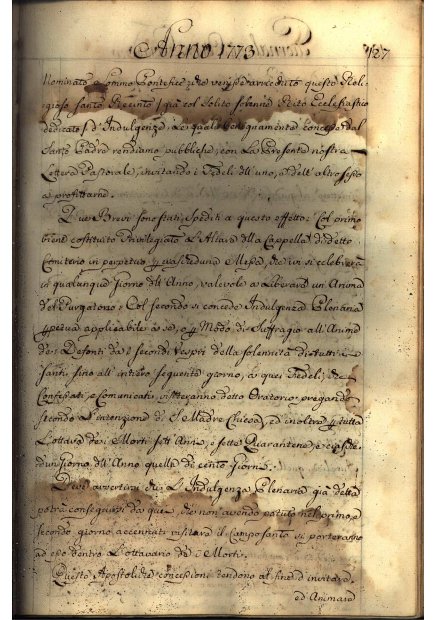 Anno 1773
127
Nominato Sommo Pontefice
gioso santo Recinto già col Solito solenne Rito Ecclesiastico
dedicato d'Indulgenza, La quale benignamente concesse dal
Santo Padre rendiamo pubbliche, con La Presente nostra
Lettera Pastorale, invitando i Fedeli dell'uno, e dell'altro sesso
a profittarne.
Due Brevi sono stati spediti a questo effetto: Col primo
viene costituito Privilegiato L'Altare della Cappella di detto
Cemiterio in perpetuo Messa, che vi si celebrerà
in qualunque Giorno dell'Anno, valevole a Liberare un Anima
dal Purgatorio. Col secondo si concede Indulgenza Plenaria
applicabile a se, e Modo di Suffragio all'Anime
dei Defonti da secondi Vespri della solennità di tutti i
Santi fino all'intiero seguente giorno, a quei Fedeli, che
Confessati, e comunicati, visiteranno detto Oratorio, pregando
secondo L'intenzione di S. Madre Chiesa, ed inoltre tutta
L'ottava dei Morti sett'Anni, e sette Quarantene,
d'un Giorno dell'Anno quella di cento Giorni.
Deve avvertirsi che L'Indulgenza Plenaria già detta
potrà conseguirsi da quei, che non avendo potuto nel primo, e
secondo giorno accennati visitare il Camposanto si porteranno
ad esso dentro L'ottavario dei Morti.
Queste Apostoliche concessioni tendono al fine d'invitare,
ed Animare